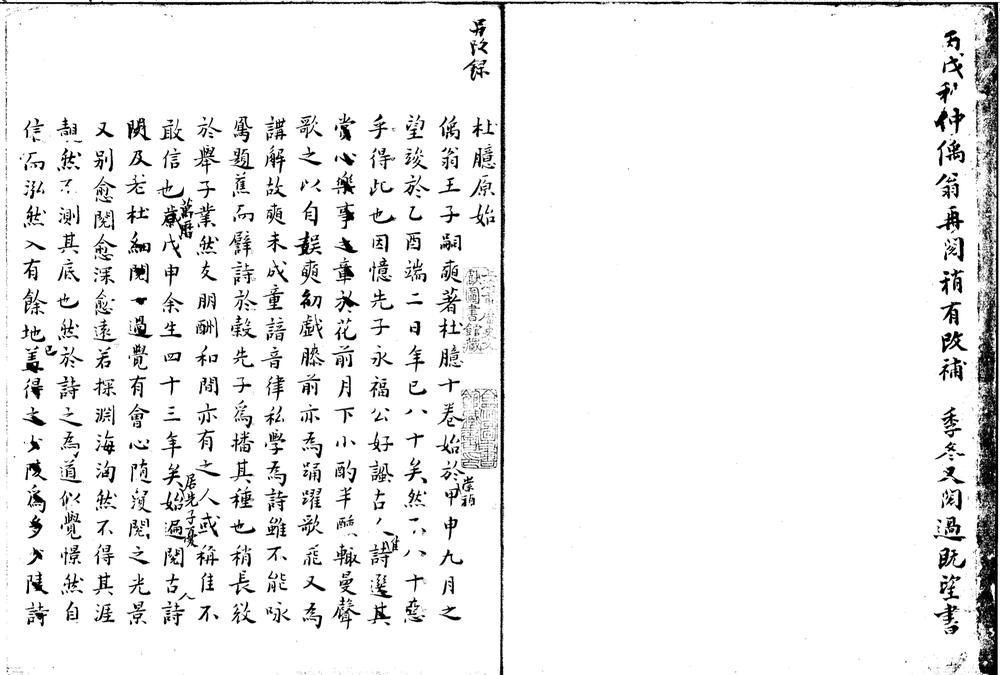 丙戌秋仲偊翁再閱稍有改補　季冬又閱過既望書
另改錄
杜臆原始
偊翁王子嗣奭著杜臆十卷始於崇禎甲申九月之
望竣於乙酉端二日年已八十矣然不八十惡
乎得此也因憶先子永福公好謳古人詩選其
賞心樂事之章於花前月下小酌半酣輒曼聲
歌之以自娛奭幼戲膝前亦為踊躍歌飛又為
講解故奭未成童諳音律私學為詩雖不能咏
鳳題蕉而闢詩於穀先子為播其種也稍長紋
於舉子業然友朋酬和間亦有之人或稱佳不
敢信也萬曆歲戊申余生四十三年矣居先子憂始遍閱古人詩
閱及老杜細閱一過覺有會心隨復閱之光景
又別愈閱愈深愈遠若探淵海洶然不得其涯
覩然不測其底也然於詩之為道似覺憬然自
信而泓然入有餘地已蓋得之少陵為多少陵詩